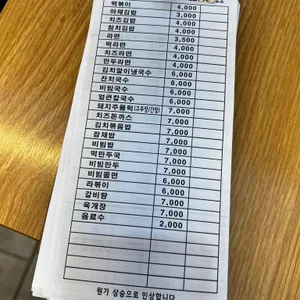 떡볶이 4,000
야채김밥 3,000
치즈김밥 4,000
참치김밥 4,000
라면 3,500
떡라면 4,000
치즈라면 4,000
만두라면 4,000
김치말이냉국수 6,000
잔치국수 6,000
비빔국수 6,000
얼큰칼국수 6,000
돼지주물럭(고추장/간장) 7,000
치즈돈까스 7,000
김치볶음밥 7,000
잡채밥 7,000
비빔밥 7,000
떡만두국 7,000
비빔만두 7,000
비빔쫄면 7,000
라볶이 6,000
갈비탕 7,000
육개장 7,000
음료수 2,000
원가 상승으로 인상합니다